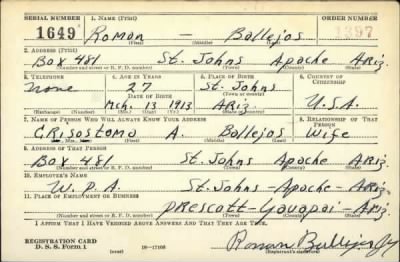 SERIAL NUMBER 1. NAME (Print) ORDER NUMBER
1649 Roman — Ballejos 1397
(First) (Middle) (Last)
2. ADDRESS (Print)
Box 481 St. Johns Apache Ariz.
(Number and street or R. F. D. number) (Town) (County) (State)
3. TELEPHONE 4. AGE IN YEARS 5. PLACE OF BIRTH 6. COUNTRY OF CITIZENSHIP
None 27 St. Johns
DATE OF BIRTH (Town or county)
Mch. 13 1913 Ariz. U.S.A.
(Exchange) (Number) (Mo.) (Day) (Yr.) (State or country)
7. NAME OF PERSON WHO WILL ALWAYS KNOW YOUR ADDRESS 8. RELATIONSHIP OF THAT PERSON
Crisostomo A. Ballejos Wife
(Mr., Mrs., Miss) (First) (Middle) (Last)
9. ADDRESS OF THAT PERSON
Box 481 St. Johns Apache Ariz.
(Number and street or R. F. D. number) (Town) (County) (State)
10. EMPLOYER'S NAME
W.P.A. St. Johns - Apache - Ariz.
11. PLACE OF EMPLOYMENT OR BUSINESS
Prescott - Yavapai - Ariz
(Number and street or R. F. D. number) (Town) (County) (State)
I AFFIRM THAT I HAVE VERIFIED ABOVE ANSWERS AND THAT THEY ARE TRUE.
REGISTRATION CARD
D. S. S. Form 1 (over) 16—17105 Roman Ballejos
(Registrant's signature)